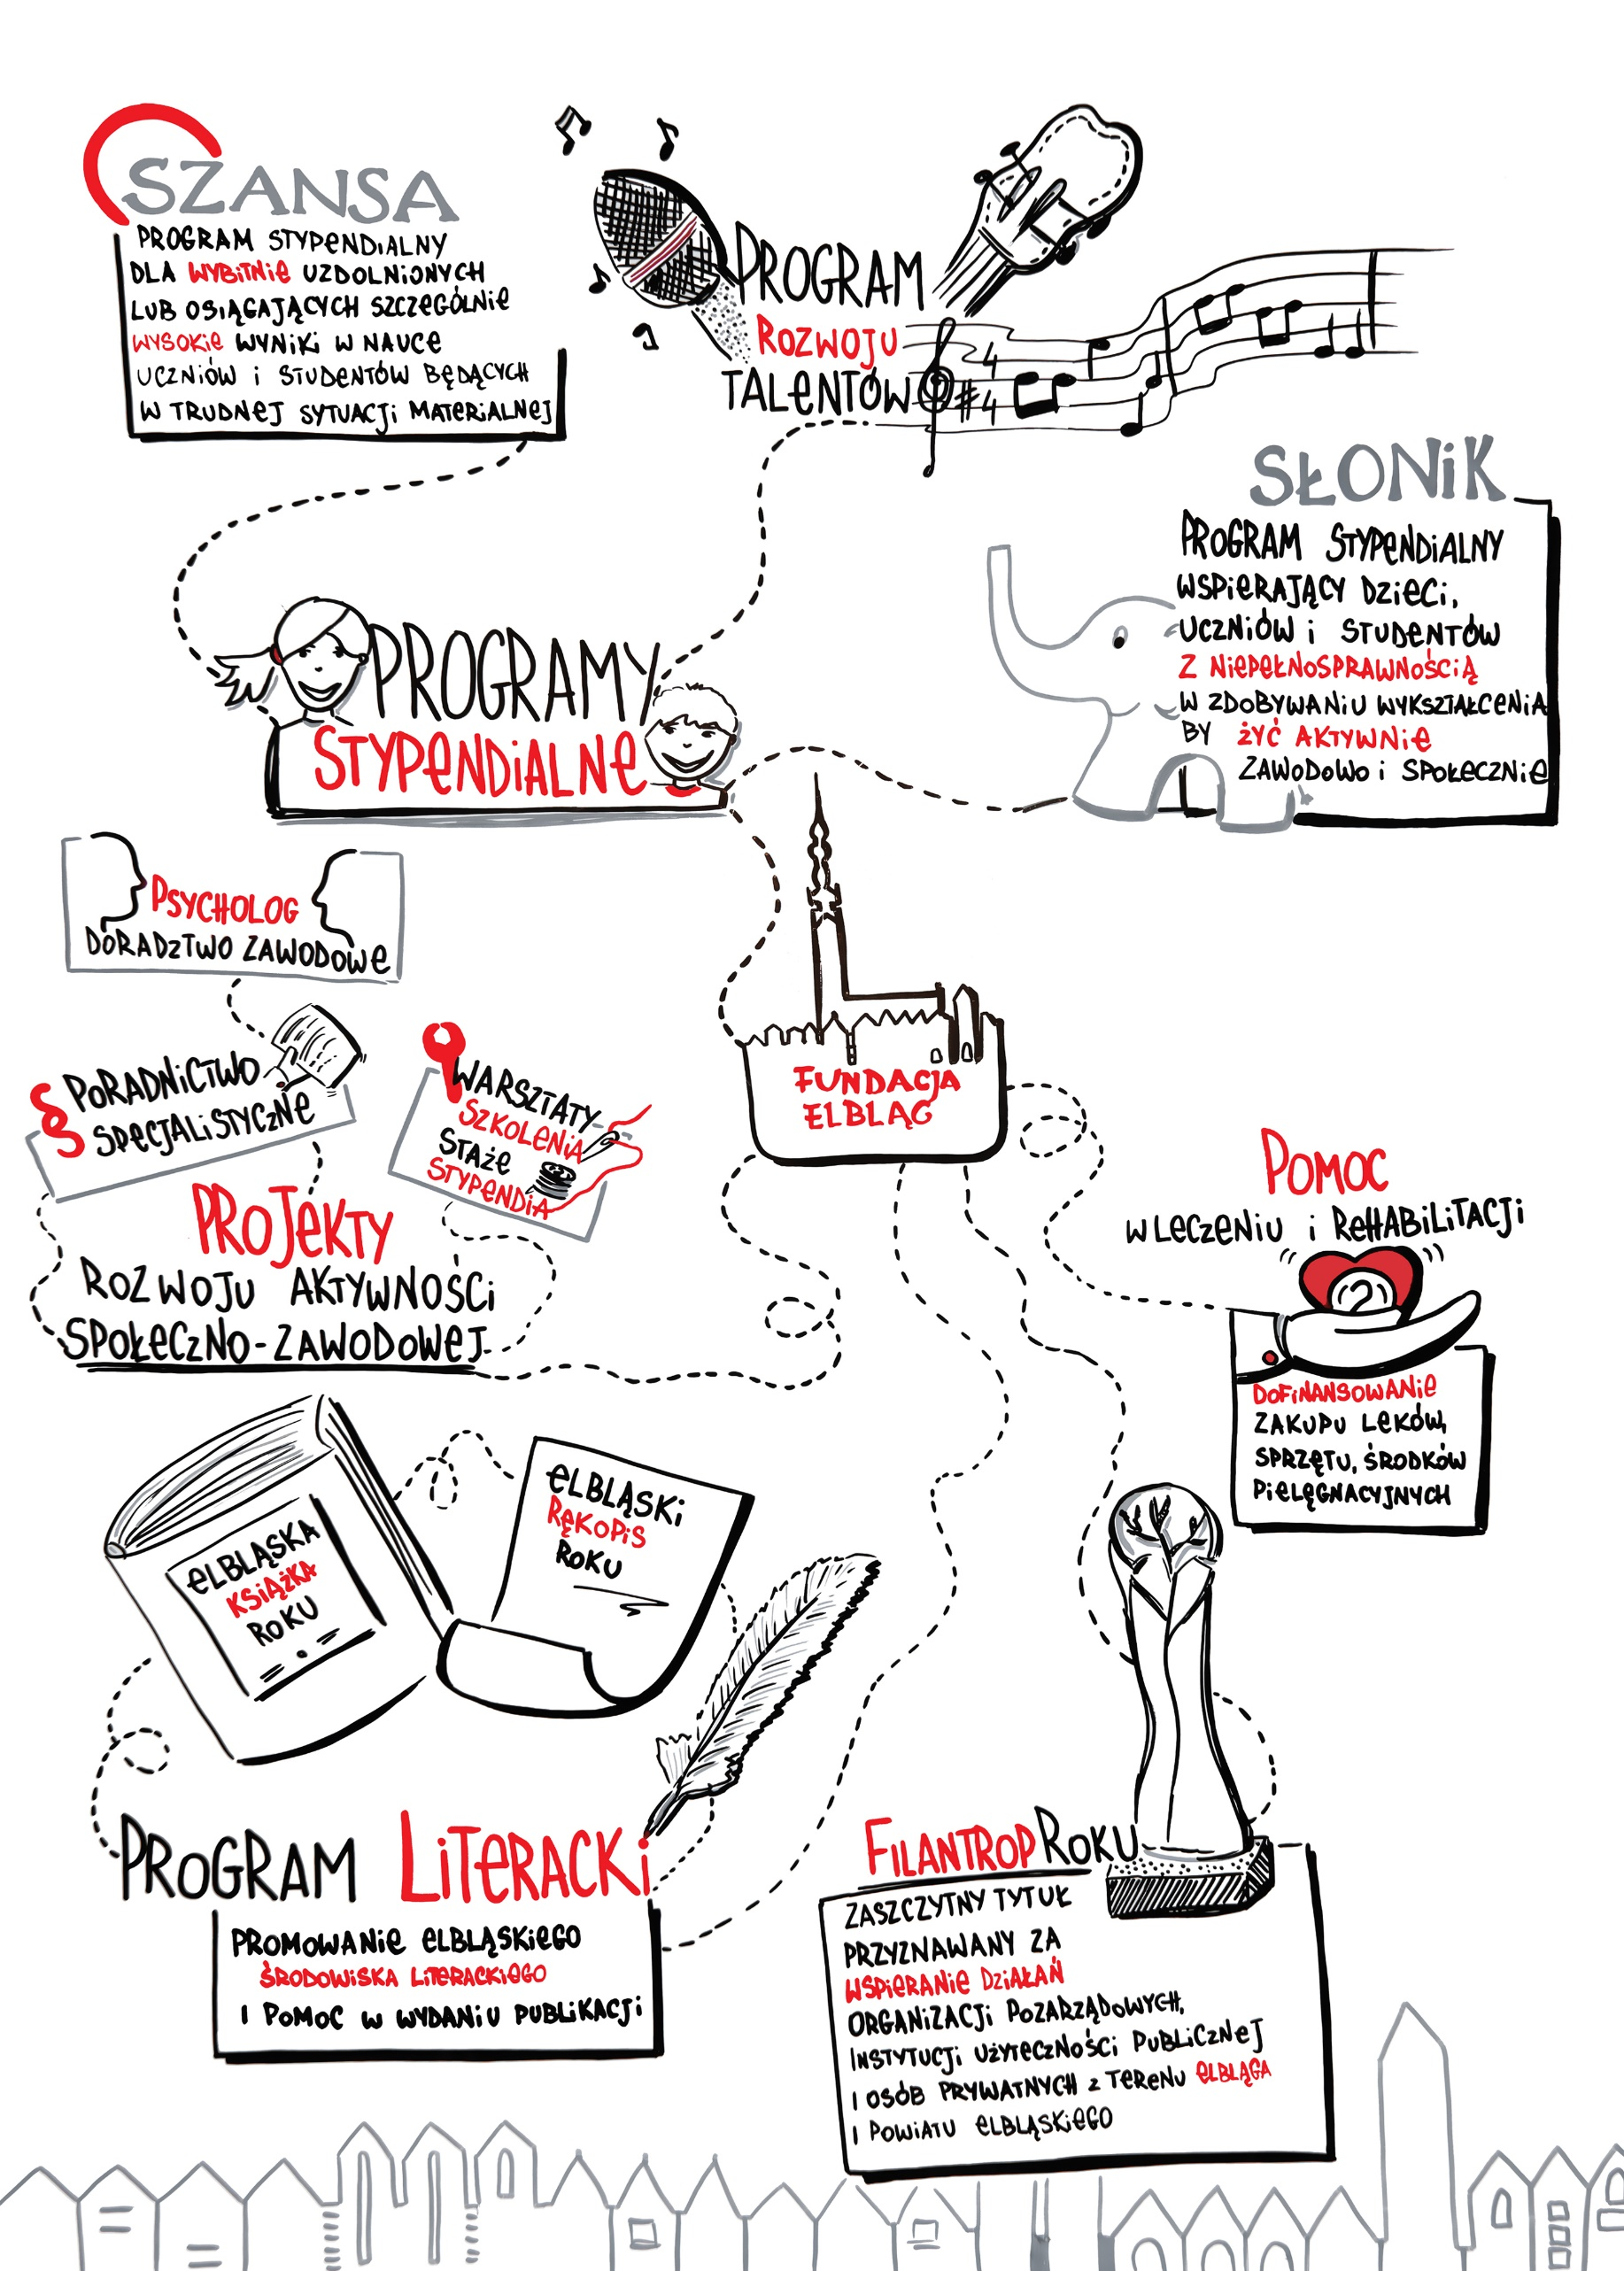 SZANSA
PROGRAM STYPENDIALNY
DLA WYBITNIE UZDOLNIONYCH
LUB OSIĄGAJĄCYCH SZCZEGÓLNIE
WYSOKIE WYNIKI W NAUCE
UCZNIÓW I STUDENTÓW BĘDĄCYCH
W TRUDNEJ SYTUACJI MATERIALNEJ
PROGRAM
ROZWOJU
TALENTÓW
4
4
SŁONIK
PROGRAM STYPENDIALNY
WSPIERAJĄCY DZIECI,
UCZNIÓW I STUDENTÓW
Z NIEPEŁNOSPRAWNOŚCIĄ
W ZDOBYWANIU WYKSZTAŁCENIA
BY ŻYĆ AKTYWNIE
ZAWODOWO I SPOŁECZNIE
PROGRAMY
STYPENDIALNE
PSYCHOLOG
DORADZTWO ZAWODOWE
§ PORADNICTWO
SPECJALISTYCZNE
WARSZTATY
SZKOLENIA
STAŻE
STYPENDIA
PROJEKTY
ROZWOJU AKTYWNOŚCI
SPOŁECZNO-ZAWODOWEJ
FUNDACJA
ELBLĄG
POMOC
W LECZENIU I REHABILITACJI
DOFINANSOWANIE
ZAKUPU LEKÓW,
SPRZĘTU, ŚRODKÓW
PIELĘGNACYJNYCH
ELBLĄSKA
KSIĄŻKA
ROKU
ELBLĄSKI
RĘKOPIS
ROKU
PROGRAM LITERACKI
PROMOWANIE ELBLĄSKIEGO
ŚRODOWISKA LITERACKIEGO
I POMOC W WYDANIU PUBLIKACJI
FILANTROP ROKU
ZASZCZYTNY TYTUŁ
PRZYZNAWANY ZA
WSPIERANIE DZIAŁAŃ
ORGANIZACJI POZARZĄDOWYCH,
INSTYTUCJI UŻYTECZNOŚCI PUBLICZNEJ
I OSÓB PRYWATNYCH Z TERENU ELBLĄGA
I POWIATU ELBLĄSKIEGO